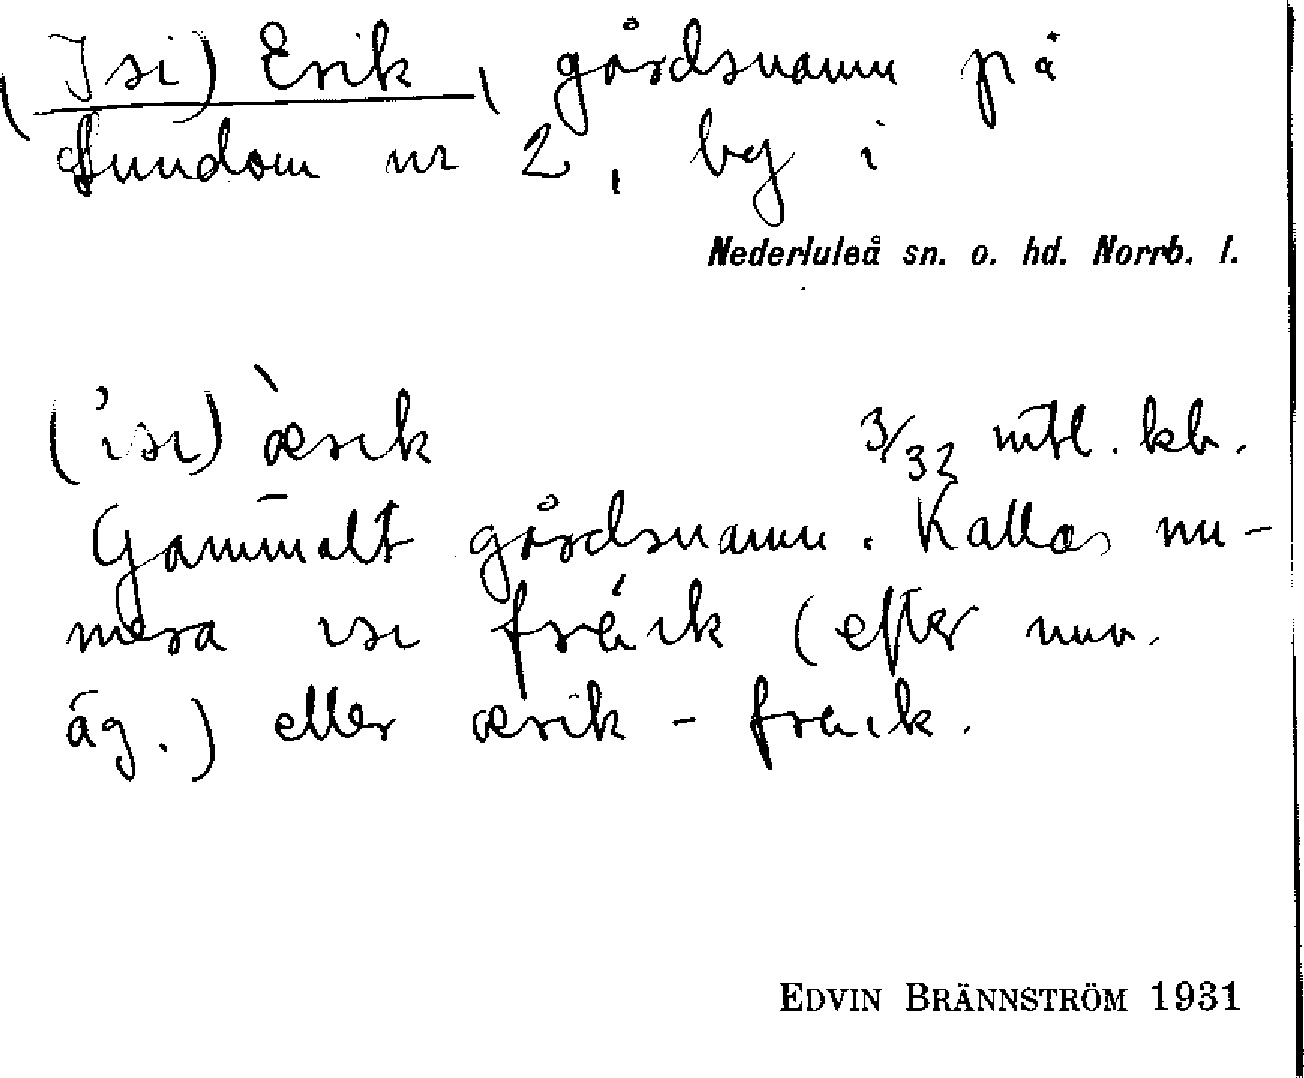 (Isi) Erik, gårdsnamn på
Sundom nr 2, by i
Nederluleå sn. o. hd. Norrb. l.
(isi) æ̀rik 3/32 mtl. kb.
Gammalt gårdsnamn. Kallas nu-
mera isi fräik (efter nuv.
äg.) eller ærik-fräik.
EDVIN BRÄNNSTRÖM 1931